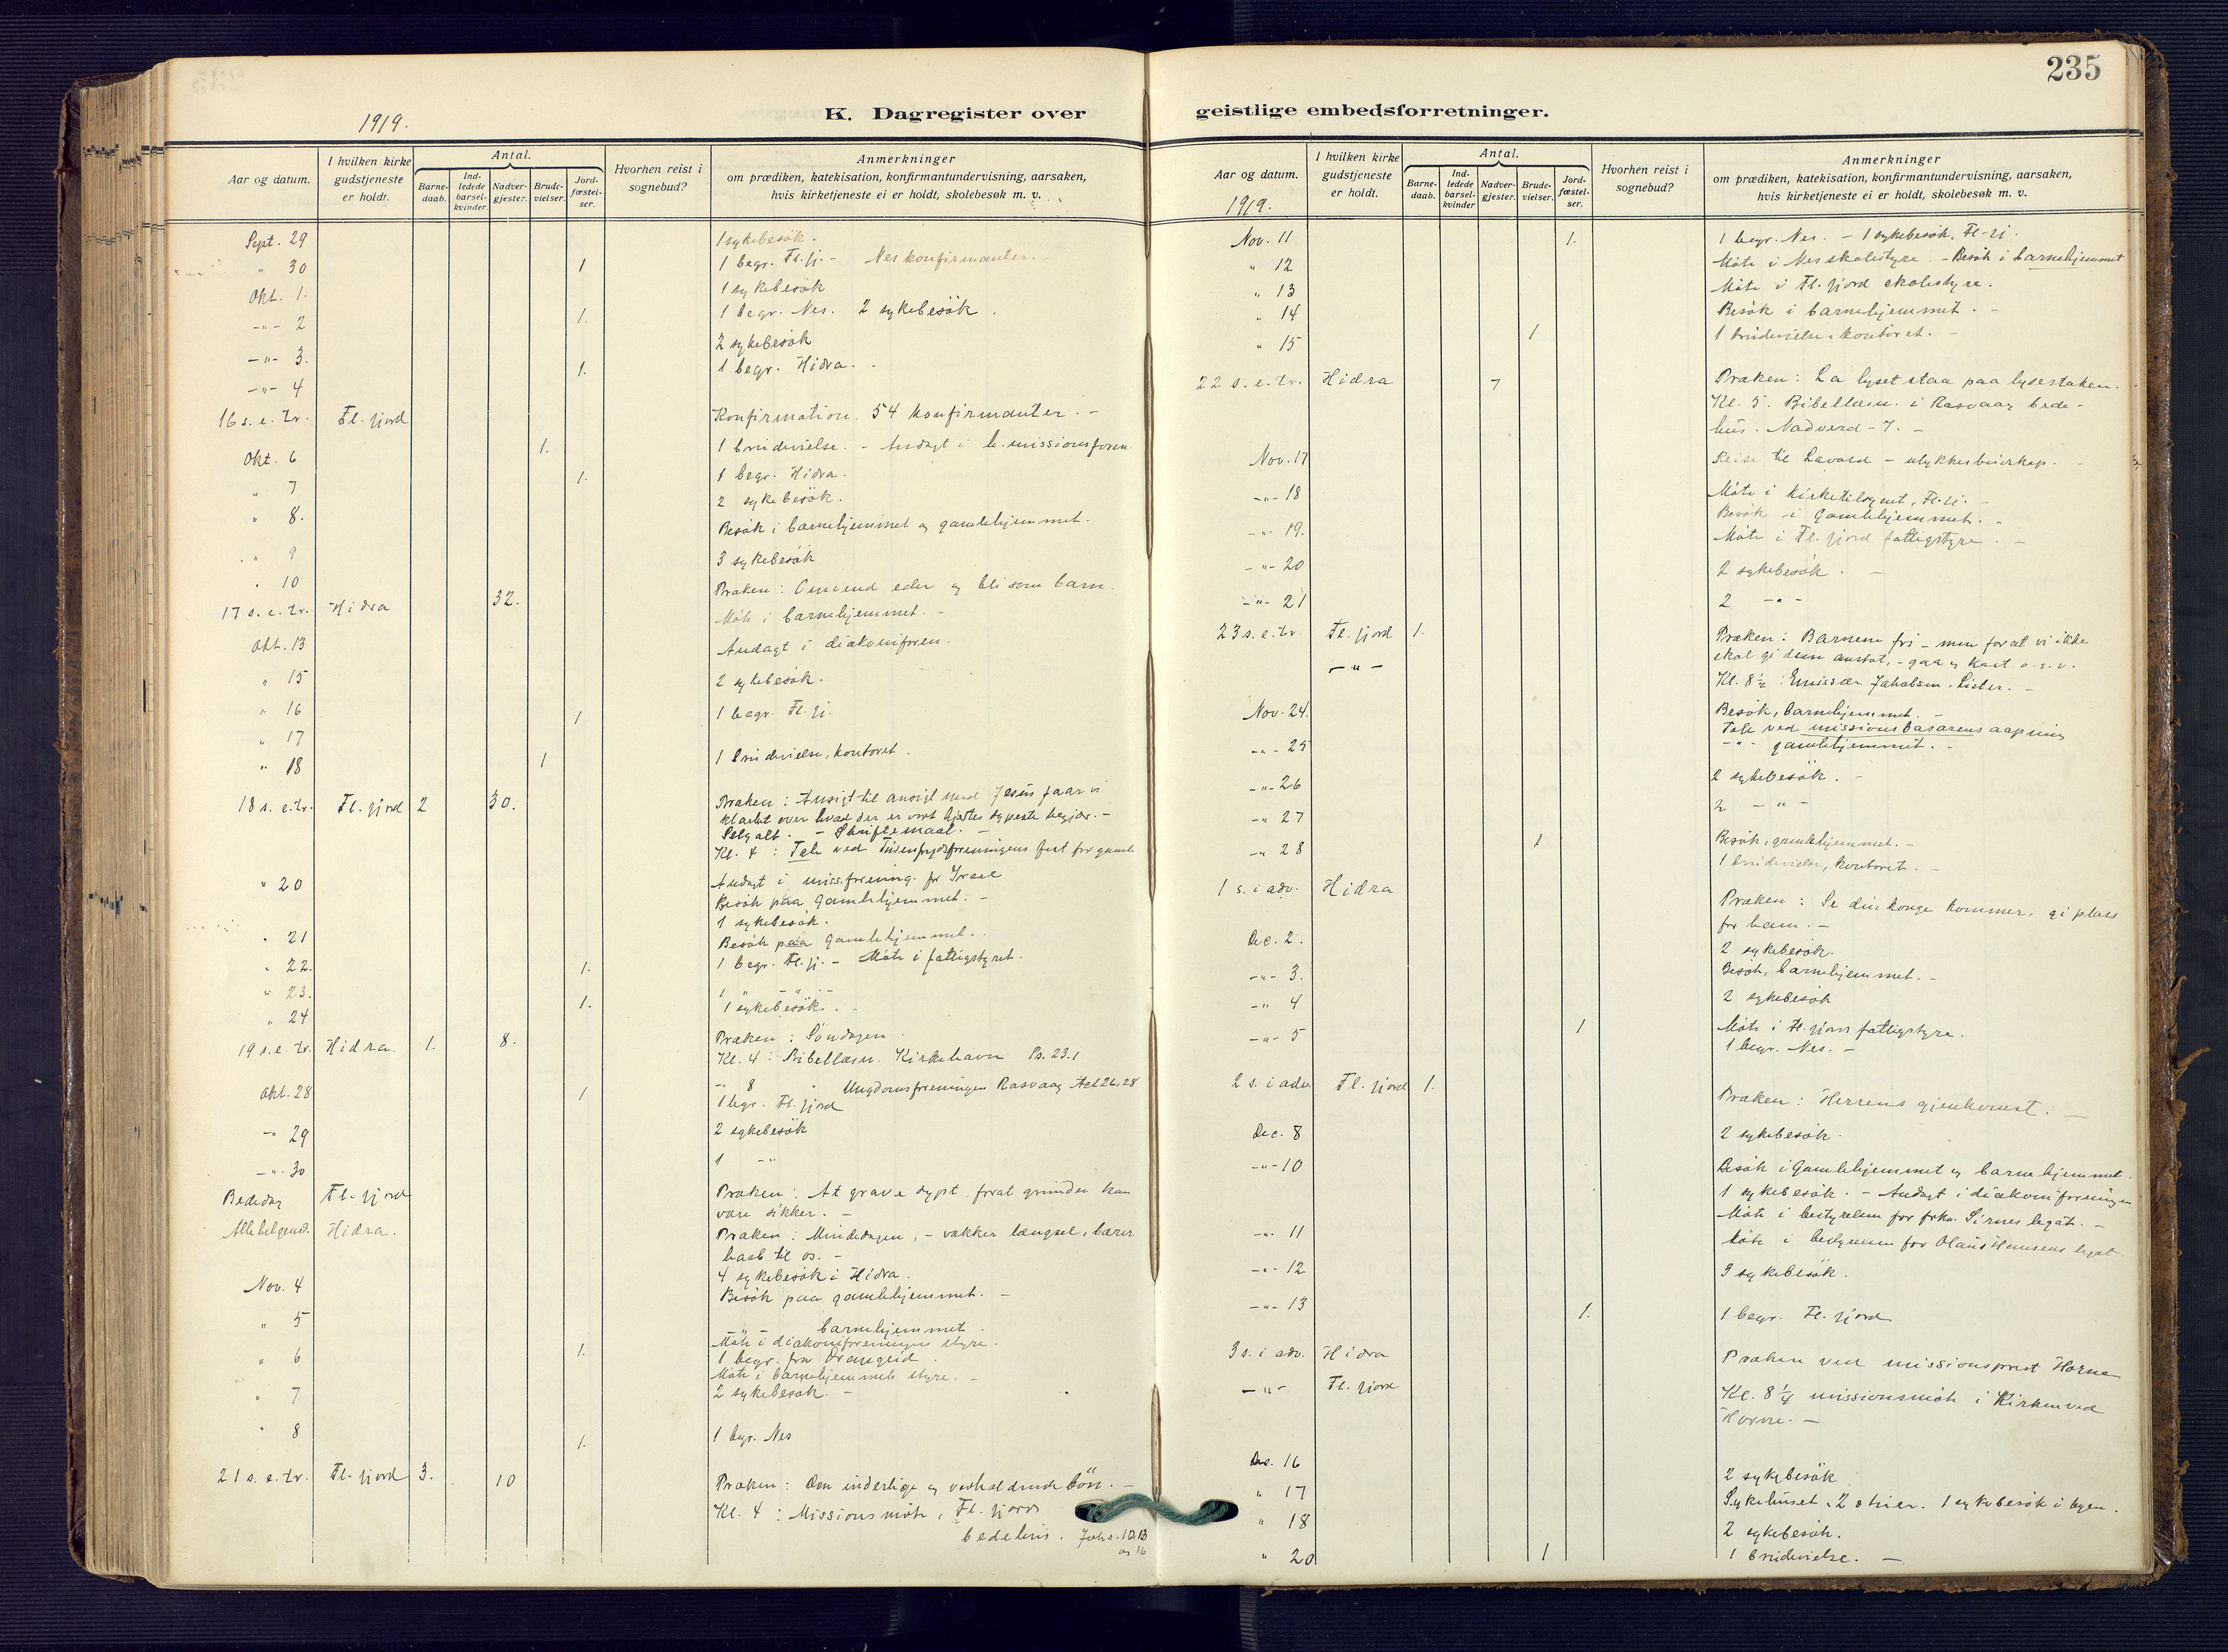 235
1919.
K. Dagregister over geistlige embedsforretninger.
Aar og datum.
I hvilken kirke gudstjeneste er holdt.
Antal.
Barne-daab.
Ind-ledede barsel-kvinder.
Nadver-gjester.
Brude-vielser.
Jord-fæstel-ser.
Hvorhen reist i sognebud?
Anmerkninger
om prædiken, katekisation, konfirmantundervisning, aarsaken,
hvis kirketjeneste ei er holdt, skolebesøk m. v.
Sept. 29 1 sykebesök.
" 30 1 1 begr. Fl.fj. - Nes konfirmanter. -
Okt. 1. 1 sykebesök
-"- 2 1. 1 begr. Nes. 2 sykebesök.
-"- 3. 2 sykebesök
-"- 4 1. 1 begr. Hidra.
16 s. e. tr. Fl. fjord Konfirmation. 54 konfirmanter. -
Okt. 6 1. 1 brudevielse. - Andagt i
" 7 1. 1 begr. Hidra.
" 8. 2 sykebesök.
Besök i barnehjemmet og gamlehjemmet.
" 9
" 10 3 sykebesök
17 s. e. tr. Hidra 32. Præken: Omvend eder og bli som barn.
Okt. 13 Möte i barnehjemmet. -
" 15 Andagt i diakoniforen.
" 16 2 sykebesök.
" 17 1 1 begr. Fl. fj.
" 18 1 1 brudevielse, kontoret.
18 s. e. tr. Fl. fjord 2 30. Præken: Ansigt til ansigt med Jesus faar vi
klarhet over hvad der er vort hjertes dypeste begjær. -
Selg alt. - Skriftemaal. -
Kl. 4: Tale ved Tusenfrydforeningens fest for gamle
" 20 Andagt i miss.forening. for Israel
Besök paa Gamlehjemmet. -
1 sykebesök.
" 21 Besök paa Gamlehjemmet.
" 22. 1. 1 begr. Fl. fj. - Möte i fattigstyret.
" 23. 1. 1 " - " -
" 24 1 sykebesök. -
19 s. e. tr. Hidra. 1. 8. Præken: Söndagen.
Kl. 4: Bibellæsn. Kirkehavn Ps. 23.1
-" 8 " Ungdomsforeningen Rasvaag Act 26.28
Okt. 28 1 1 begr. Fl. fjord
-" 29 2 sykebesök
-"- 30 1 -"
Bededag Fl. fjord Præken: At grave dypt, forat grunden kan
være sikker. -
Allehelgensd. Hidra. Præken: Mindedagen, - vækker længsel, bærer
haab til os. -
4 sykebesök i Hidra.
Nov. 4 Besök paa gamlehjemmet. -
" 5 -"- barnehjemmet
Möte i diakoniforeningens styre.
" 6 1. 1 begr. fra
Möte i barnehjemmets styre. -
" 7 2 sykebesök. -
" 8 1. 1 begr. Nes
21 s. e. tr. Fl. fjord 3. 10 Præken: Om inderlige og vedholdende bön. -
Kl. 4: Missionsmöte, Fl. fjords
bedehus. Joh. 10.13
og 16
Aar og datum.
1919.
I hvilken kirke gudstjeneste er holdt.
Antal.
Barne-daab.
Ind-ledede barsel-kvinder
Nadver-gjester.
Brude-vielser.
Jord-fæstel-ser.
Hvorhen reist i sognebud?
Anmerkninger
om prædiken, katekisation, konfirmantundervisning, aarsaken,
hvis kirketjeneste ei er holdt, skolebesøk m. v.
Nov. 11 1. 1 begr. Nes. - 1 sykebesök, Fl. fj.
" 12 Möte i Nes skolestyre. - Besök i barnehjemmet
" 13 Möte i Fl. fjord skolestyre.
" 14 Besök i barnehjemmet. -
" 15 1 1 brudevielse, kontoret. -
22 s. e. tr. Hidra 7 Præken: La lyset staa paa lysestaken.
Kl. 5. Bibellæsn. i Rasvaag bede-
hus. Nadverd - 7. -
Nov. 17 Reise til Lavold - ulykkesbudskap.
-"- 18 Möte i Kirketilsynet, Fl. fj. -
Besök i Gamlehjemmet. -
-"- 19. Möte i Fl. fjord fattigstyre. -
-"- 20 2 sykebesök. -
-"- 21 2 -"-
23 s. e. tr. Fl. fjord 1. Præken: Barnene fri - men forat vi ikke
skal gi dem anstöt, - gaa og kast o. s. v.
-"- Kl. 8½: Emissær Jakobsen, Lister. -
Nov. 24. Besök, barnehjemmet. -
Tale ved missionsbasarens aapning
-"- 25 -"- gamlehjemmet. -
-"- 26 2 sykebesök. -
-" 27 2 -"-
-" 28 1 Besök, gamlehjemmet. -
1 brudevielse, kontoret. -
1 s. i adv. Hidra Præken: Se din konge kommer, gi plass
for ham. -
Dec. 2. 2 sykebesök.
-"- 3. Besök, barnehjemmet. -
-" 4 2 sykebesök
-"- 5 1 Möte i Fl. fjords fattigstyre.
1 begr. Nes. -
2 s. i adv. Fl. fjord 1. Præken: Herrens gjenkomst. -
Dec. 8 2 sykebesök.
-"- 10 Besök i Gamlehjemmet og barnehjemmet.
1 sykebesök. - Andagt i diakoniforeningen
Möte i bestyrelsen for frkn. Sirnes legat. -
-"- 11 Möte i bestyrelsen for Olaus Hansens legat
-"- 12 3 sykebesök.
-"- 13 1. 1 begr. Fl. fjord
3 s. i adv. Hidra Præken ved missionsprest Horne
-"- Fl. fjord Kl. 8¼ missionsmöte i Kirken ved
Horne. -
Dec. 16 2 sykebesök
" 17 Sykehuset, 2 stuer. 1 sykebesök i byen.
" 18 2 sykebesök.
" 20 1 1 brudevielse. -